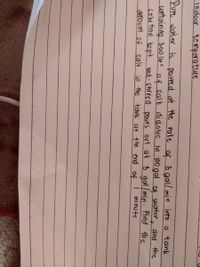 indoor temperature
Pure water is poured at the rate of 3 gal/min into a tank
containing 300 lb of salt dissolve in 100 gal of water and the
solution kept well-stirred pours out at 3 gal/min. Find the
amount of salt in the tank at the end of 1 minute